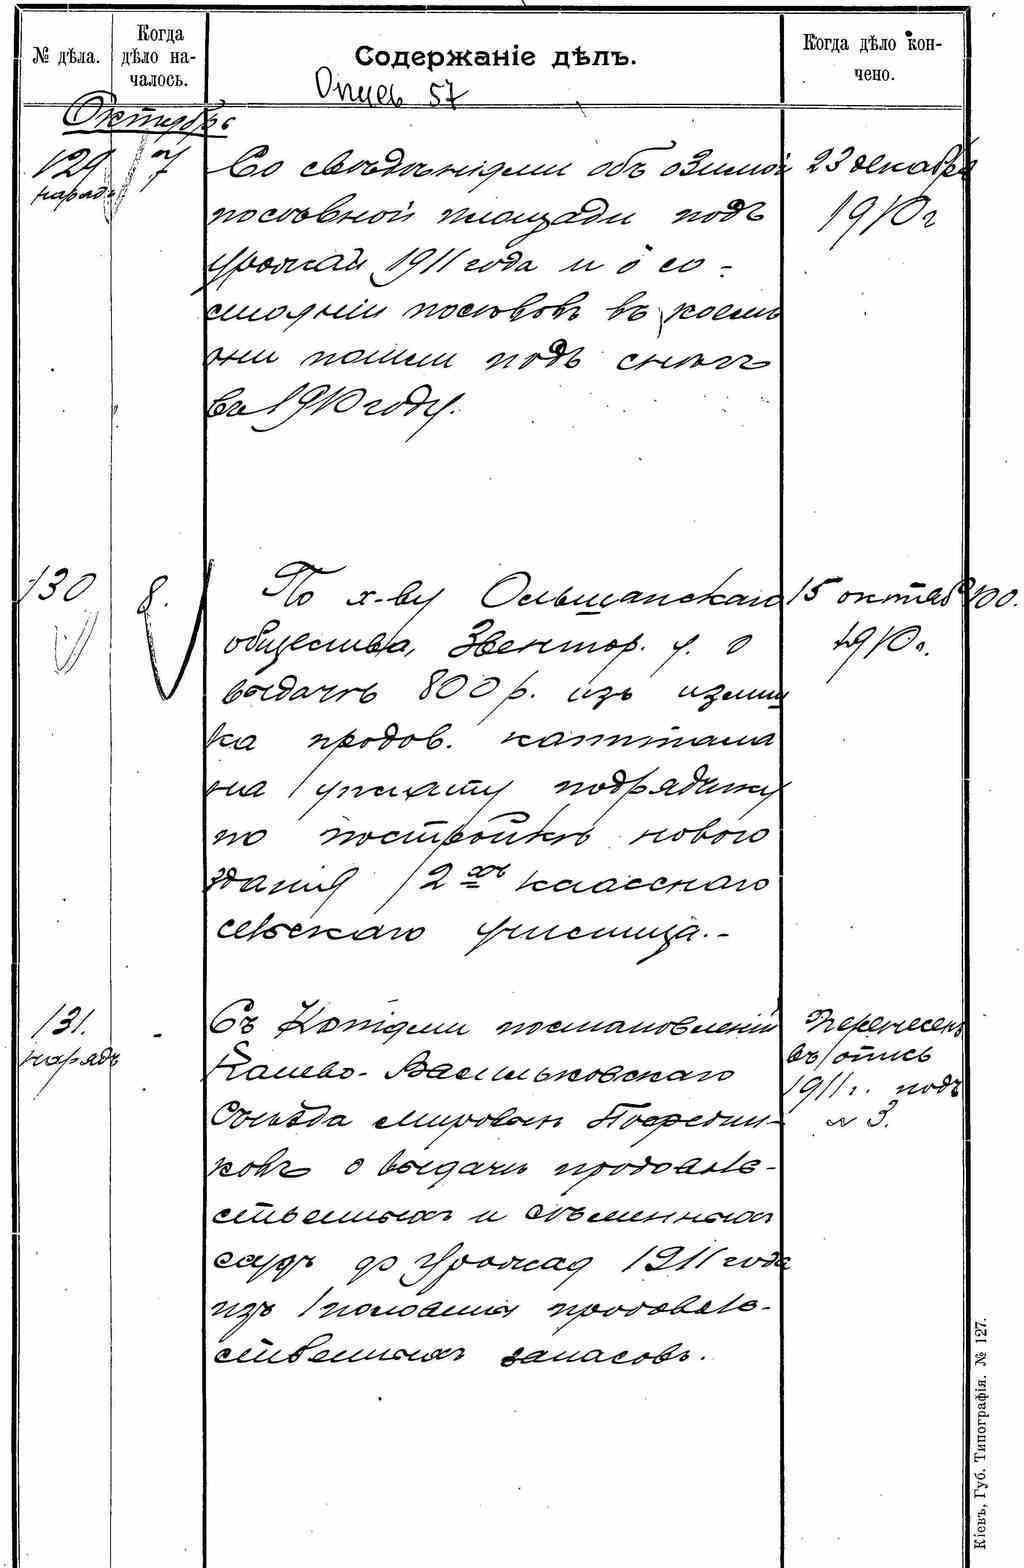 № дѣла.
Когда дѣло на-чалось.
Содержаніе дѣлъ.
Когда дѣло кон-чено.
Опись 57
Октябрь
129
нарядъ
7
Со свѣдѣніями объ озимой
посѣвной площади подъ
урожай 1911 года и о со-
стояніи посѣвовъ въ коемъ
они пошли подъ снѣгъ
въ 1910 году.
23 декабря
1910 г
130
8.
По х-ву Ольшанскаго
общества, Звенигор. у. о
выдачѣ 800 р. изъ излиш
ка продов. капитала
на уплату подрядчику
по постройкѣ новаго
зданія 2хъ класснаго
сельскаго училища.-
15 октяб
1910г.
131.
нарядъ
-
Съ Копіями постановленій
Васильковскаго
Съѣзда Мировыхъ Посредни-
ковъ о выдачѣ продоволь-
ственныхъ и сѣменныхъ
ссудъ до урожая 1911 года
изъ половины продоволь-
ственныхъ запасовъ.
Перенесенъ
въ опись
1911 г. подъ
№ 3.
Кіевъ, Губ. Типографія. № 127.